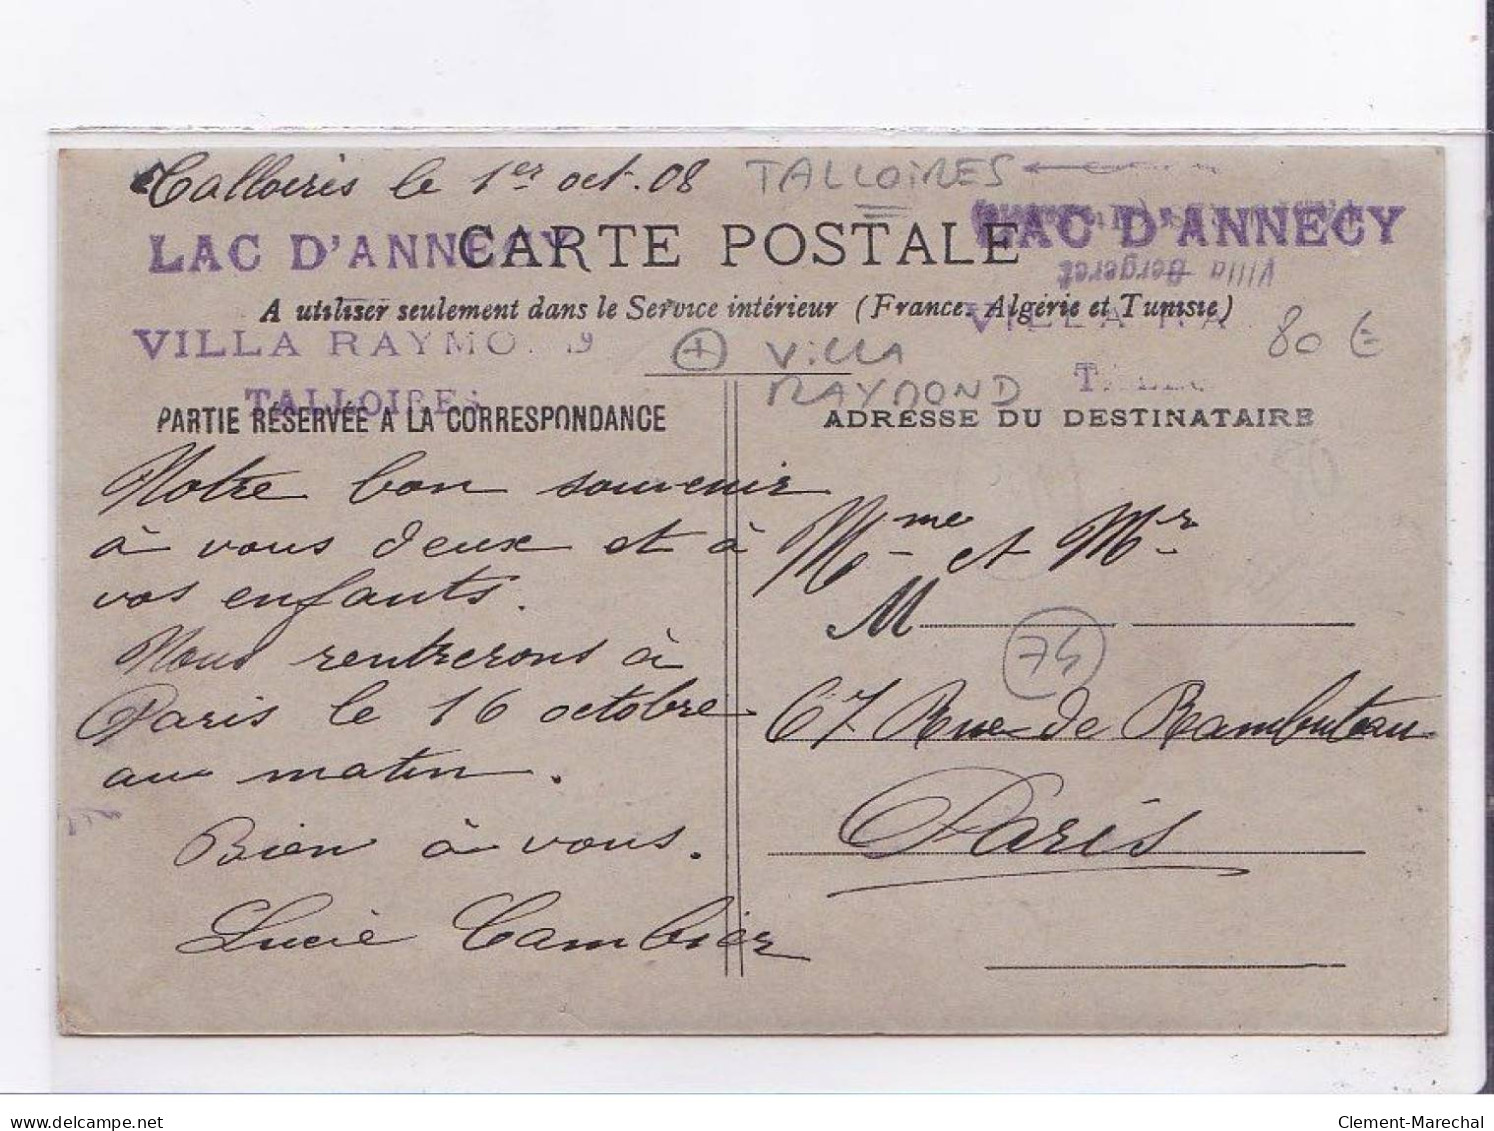 Talloires le 1er oct. 08
TALLOIRES
LAC D'ANNECY
CARTE POSTALE
LAC D'ANNECY
Villa Bergeret
A utiliser seulement dans le Service intérieur (France, Algérie et Tunisie)
VILLA RAYMO
VILLA RA
80 €
+ VILLA
RAYMOND
TALLOIRES
TALLO
PARTIE RÉSERVÉE A LA CORRESPONDANCE
ADRESSE DU DESTINATAIRE
Notre bon souvenir
à vous deux et à
vos enfants.
Nous rentrerons à
Paris le 16 octobre
au matin.
Bien à vous.
Lucie Cambier
Mme et Mr
M
74
67 Rue de Rambuteau
Paris
delcampe.net
Clement-Marechal